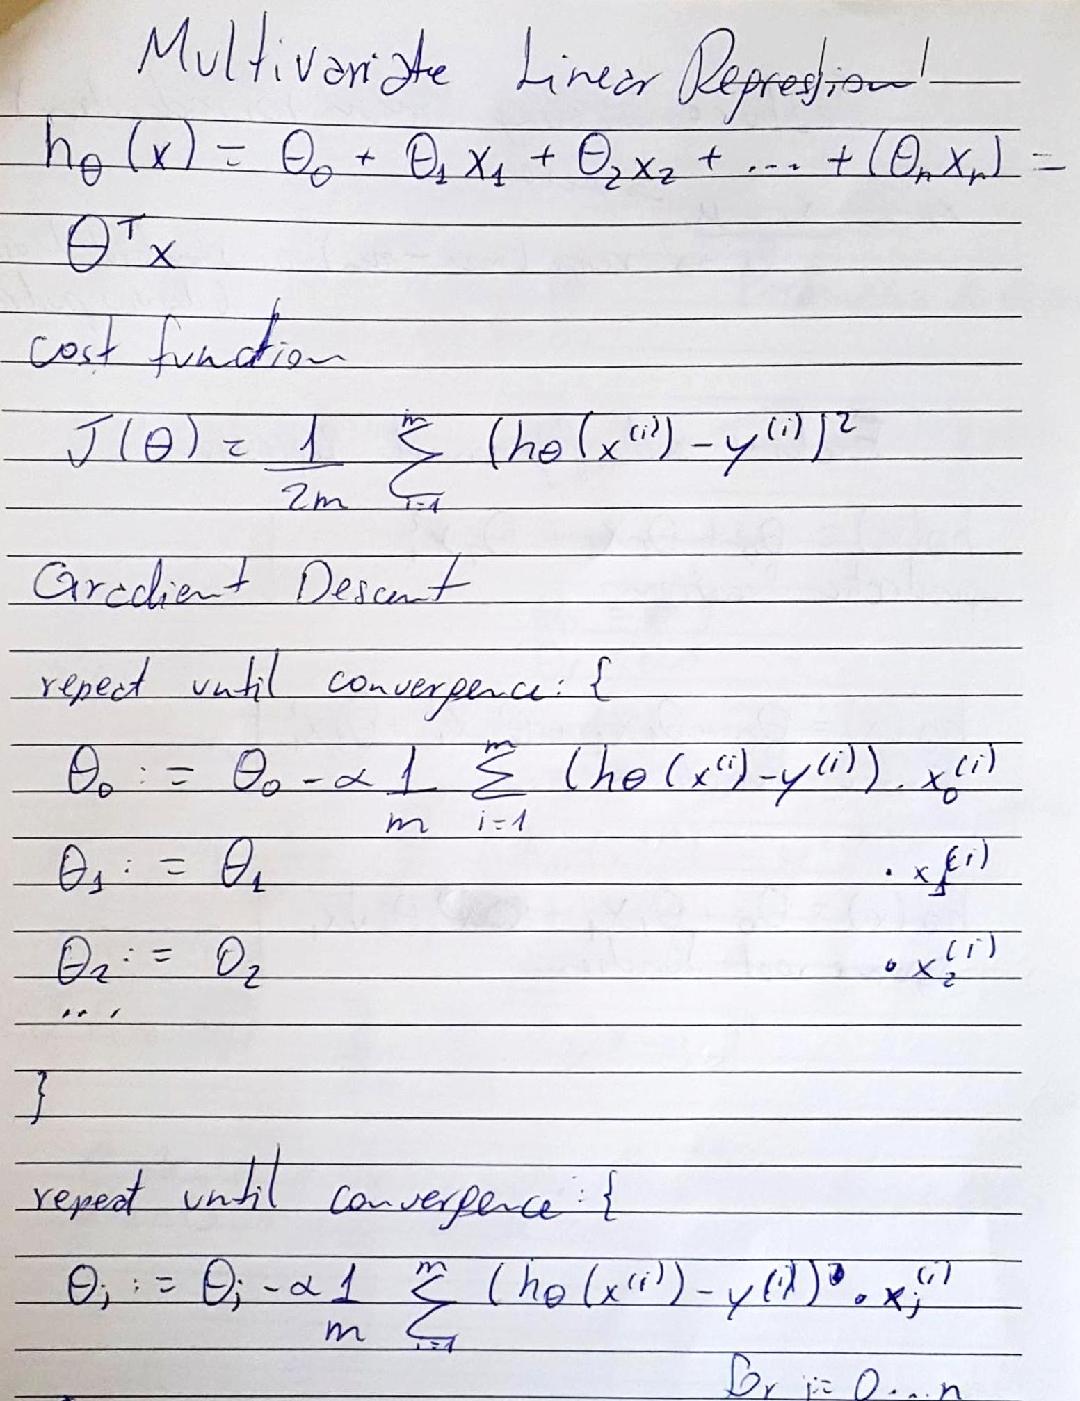 Multivariate Linear Regression
hθ(x) = θ₀ + θ₁x₁ + θ₂x₂ + ... + (θₙxₙ) =
θᵀx
cost function
J(θ) = 1/2m Σᵢ₌₁ᵐ (hθ(x⁽ⁱ⁾) - y⁽ⁱ⁾)²
Gradient Descent
repeat until convergence: {
θ₀ := θ₀ - α 1/m Σᵢ₌₁ᵐ (hθ(x⁽ⁱ⁾ - y⁽ⁱ⁾)) . x₀⁽ⁱ⁾
θ₁ := θ₁ . x₁⁽ⁱ⁾
θ₂ := θ₂ . x₂⁽ⁱ⁾
...
}
repeat until convergence: {
θⱼ := θⱼ - α 1/m Σᵢ₌₁ᵐ (hθ(x⁽ⁱ⁾) - y⁽ⁱ⁾) . xⱼ⁽ⁱ⁾
for j = 0...n